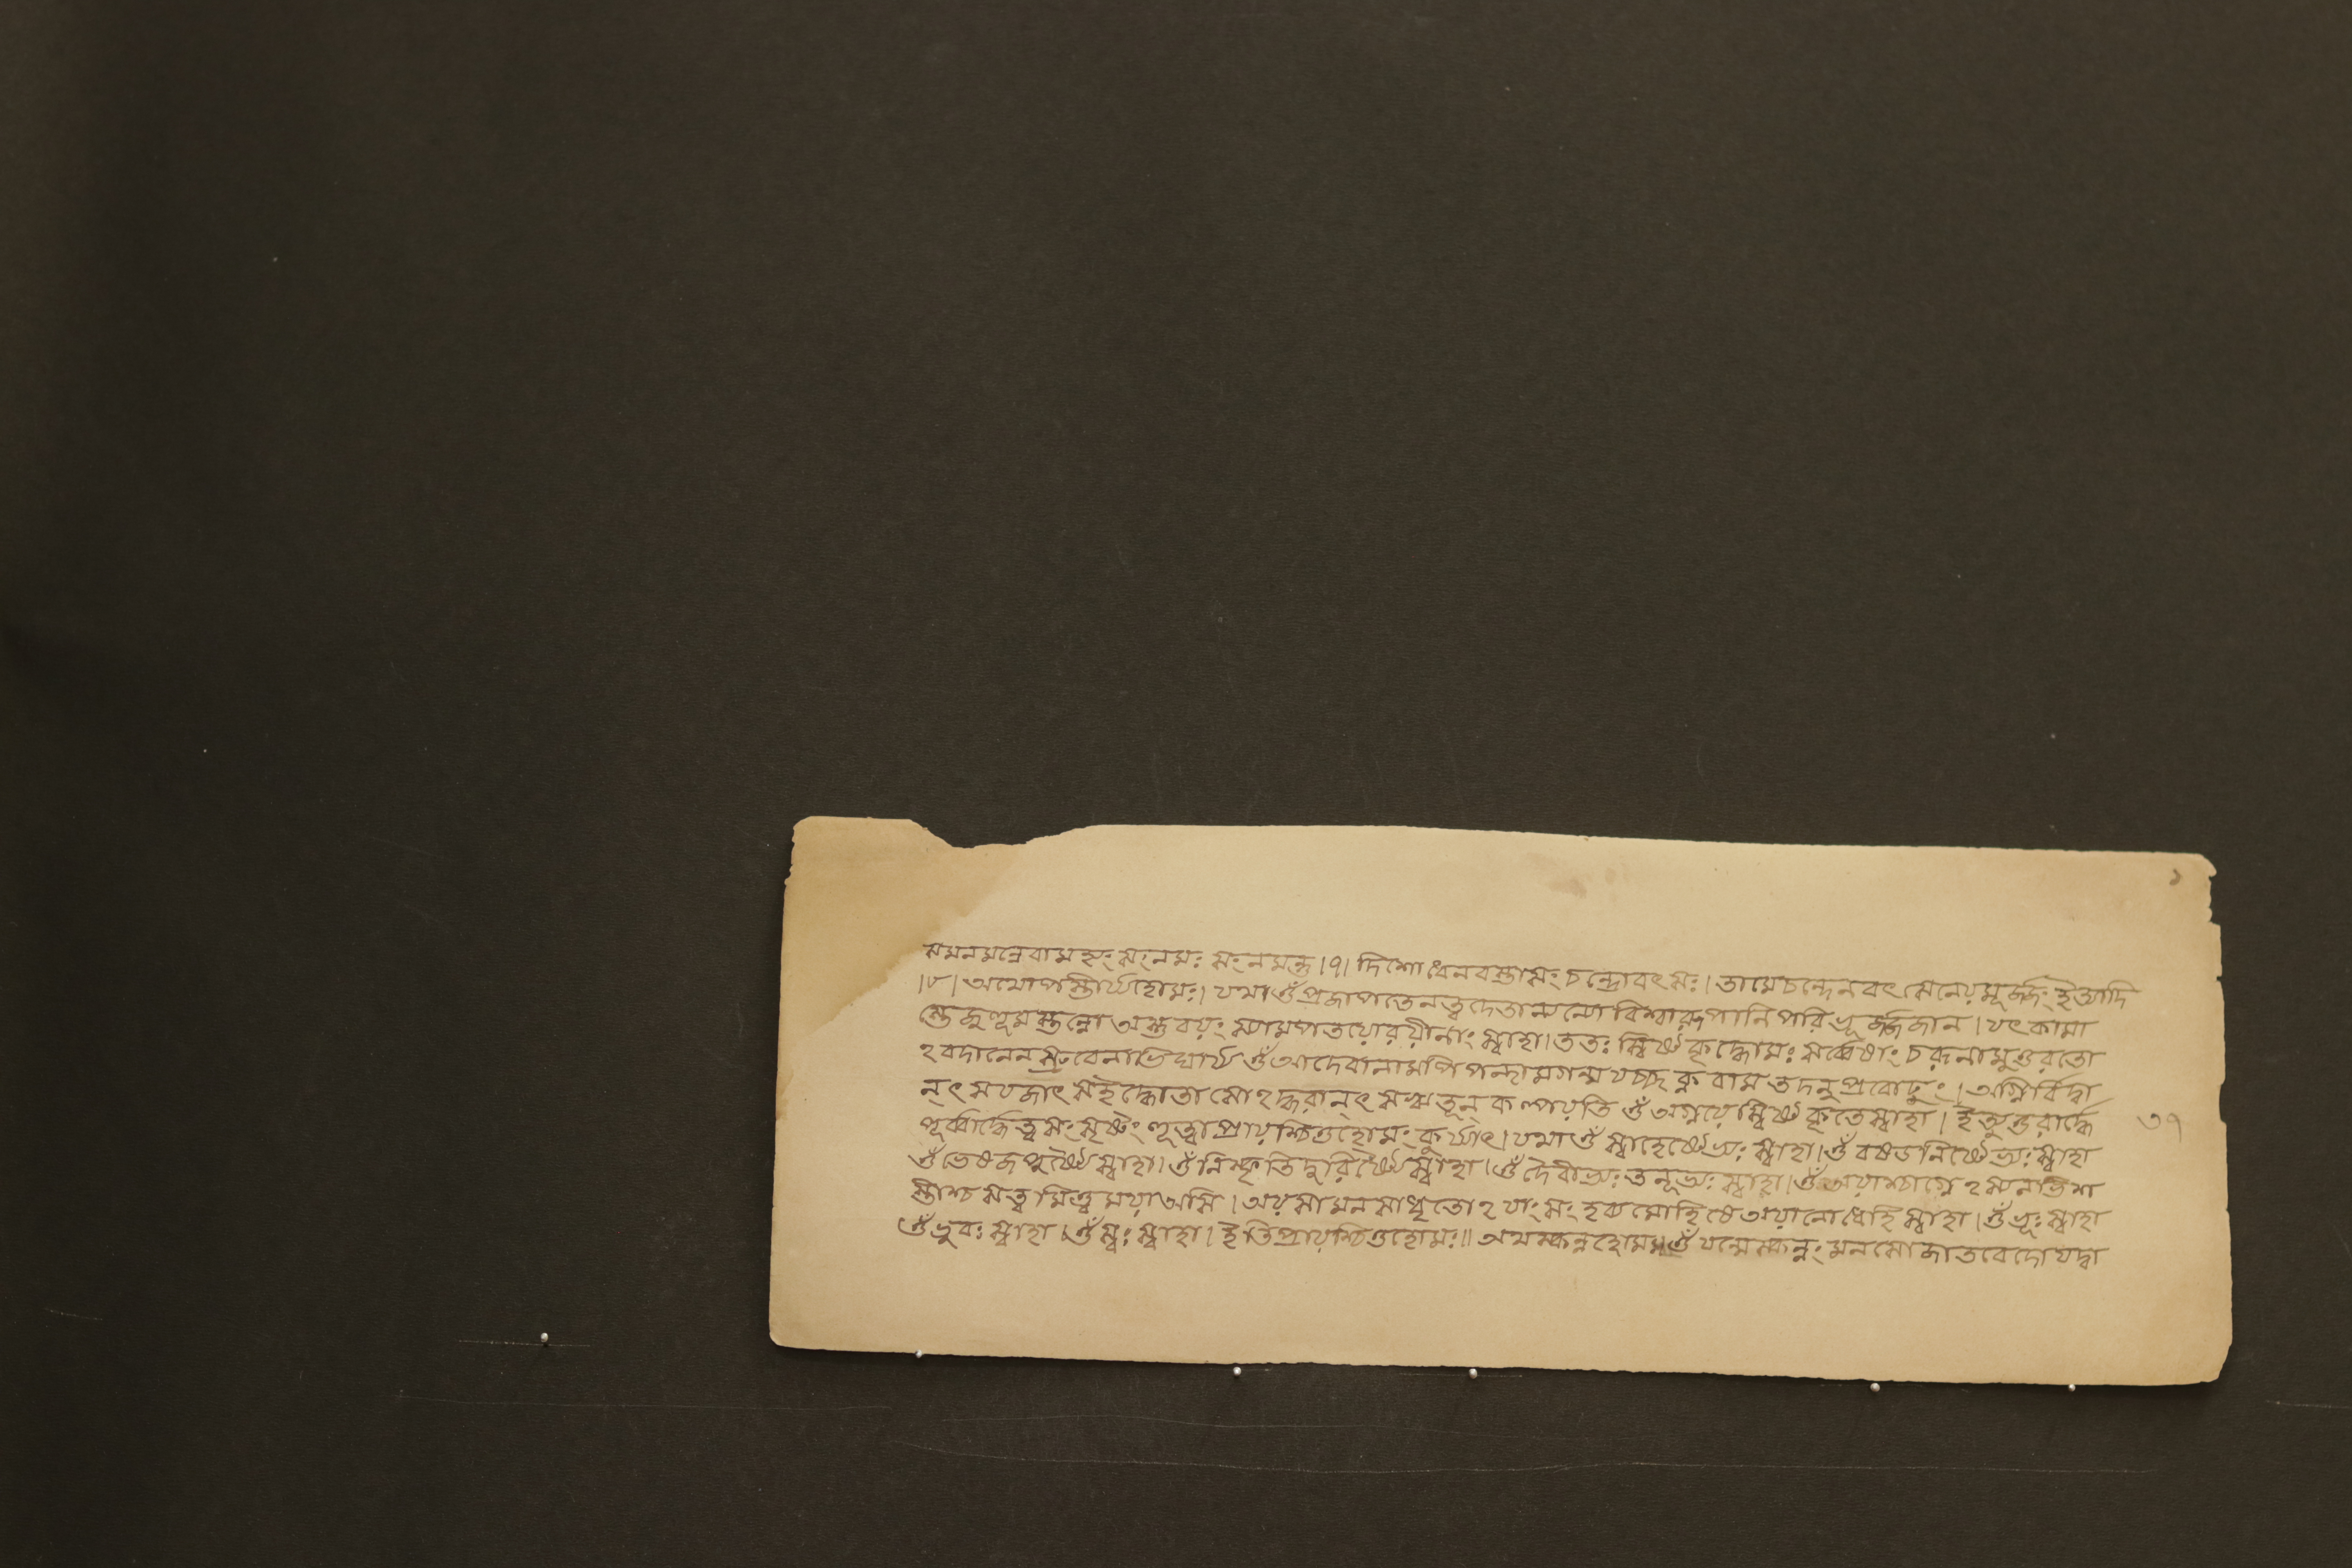 ১
সমনমন্নেবামহ্যং সংনমঃ সংনমন্তু ।৭। দিশোধেনবস্তাসং চন্দ্রোবৎসঃ। তামেচন্দেনবৎসেনেয়মূর্জ্জং ইত্যাদি
।৮। অথোপস্তীর্য্যহোমঃ। যথা ওঁ প্রজাপতেনত্বদেতান্যন্যোবিশ্বারূপানিপরিভূর্জ্জজান। যৎকামা
স্তেজুহূমস্তন্নোঅস্তুবয়ং স্যামপতয়োরয়ীনাং স্বাহা। ততঃ স্বিষ্টেকৃদ্ধোমঃ সর্ব্বেষাং চরূনামুত্তরতো
ঽবদানেনস্রুবেনাভিঘার্য্য ওঁ আদেবানামপিপন্থামগন্ম যচ্ছক্নবাম তদনুপ্রবোঢ়ুং। অগ্নির্বিদ্বা
ন্ৎসযজাৎ সইদ্ধোতাসোঽদ্ধরান্ৎ সঋতূন্ কল্পয়তি ওঁ অগ্নয়েস্বিষ্টেকৃতেস্বাহা। ইত্যুত্তরার্দ্ধে
পূর্ব্বার্দ্ধেত্বসং সৃষ্টং হূত্বাপ্রায়শ্চিত্তহোমং কুর্য্যাৎ। যথা ওঁ স্বাহেষ্টেভ্যঃ স্বাহা। ওঁ বষডনিষ্টেভ্যঃ স্বাহা
ওঁ ভেষজদুষ্টৈস্বাহা। ওঁ নিস্কৃতিদুরিষ্টৈস্বাহা। ওঁ দৈবীভ্যঃ তনূভ্যঃ স্বাহা। ওঁ অয়াশ্চাগ্নেঽস্যনভিশ
স্তীশ্চ সত্বমিত্ত্বময়াঅসি। অয়সামনসাধৃতোঽযাংসং হব্যমোহিষেঅয়ানোধেহিস্বাহা। ওঁ ভূঃ স্বাহা
ওঁ ভুবঃ স্বাহা। ওঁ স্বঃ স্বাহা। ইতিপ্রায়শ্চিত্তহোমঃ॥ অথস্কন্নহোমঃ॥ ওঁ যন্মেস্কন্নং মনসোজাতবেদোযদ্বা
৩৭